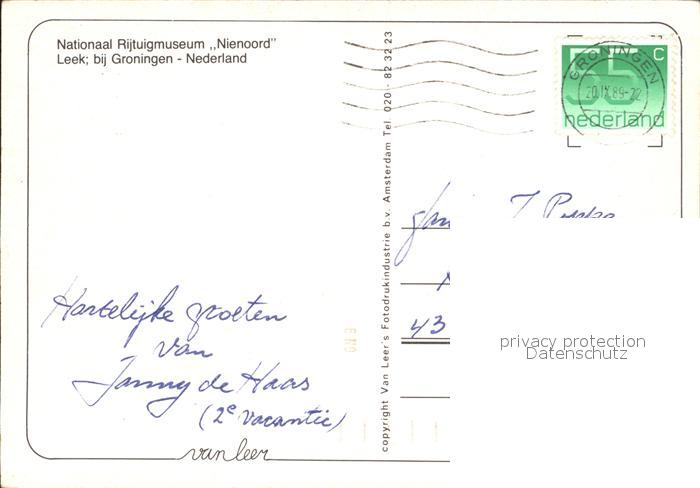 Nationaal Rijtuigmuseum „Nienoord"
Leek; bij Groningen - Nederland
copyright Van Leer's Fotodrukindustrie b.v. Amsterdam Tel. 020 - 82 32 23
GRONINGEN
20.IX.89-22
55 c
nederland
43
privacy protection
Datenschutz
Hartelijke groeten
van
Janny de Haas
(2e vacantie)
van leer